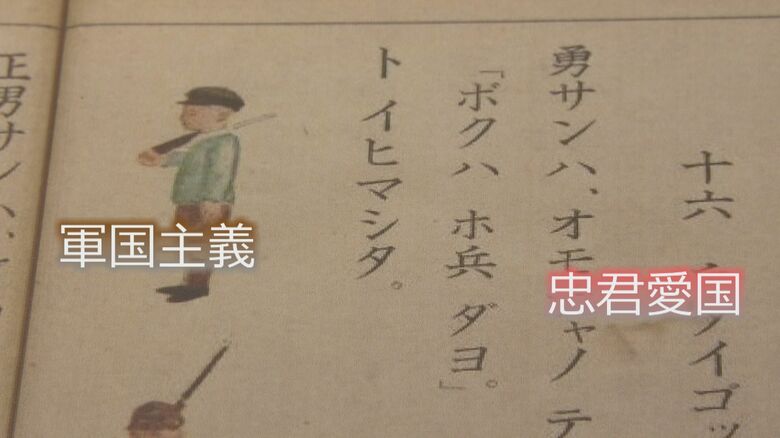 十六
イゴッ
勇サンハ、オモ
ャノ テ
「ボクハ ホ兵 ダヨ。」
ト イヒマシタ。
正男サンハ、
軍国主義
忠君愛国